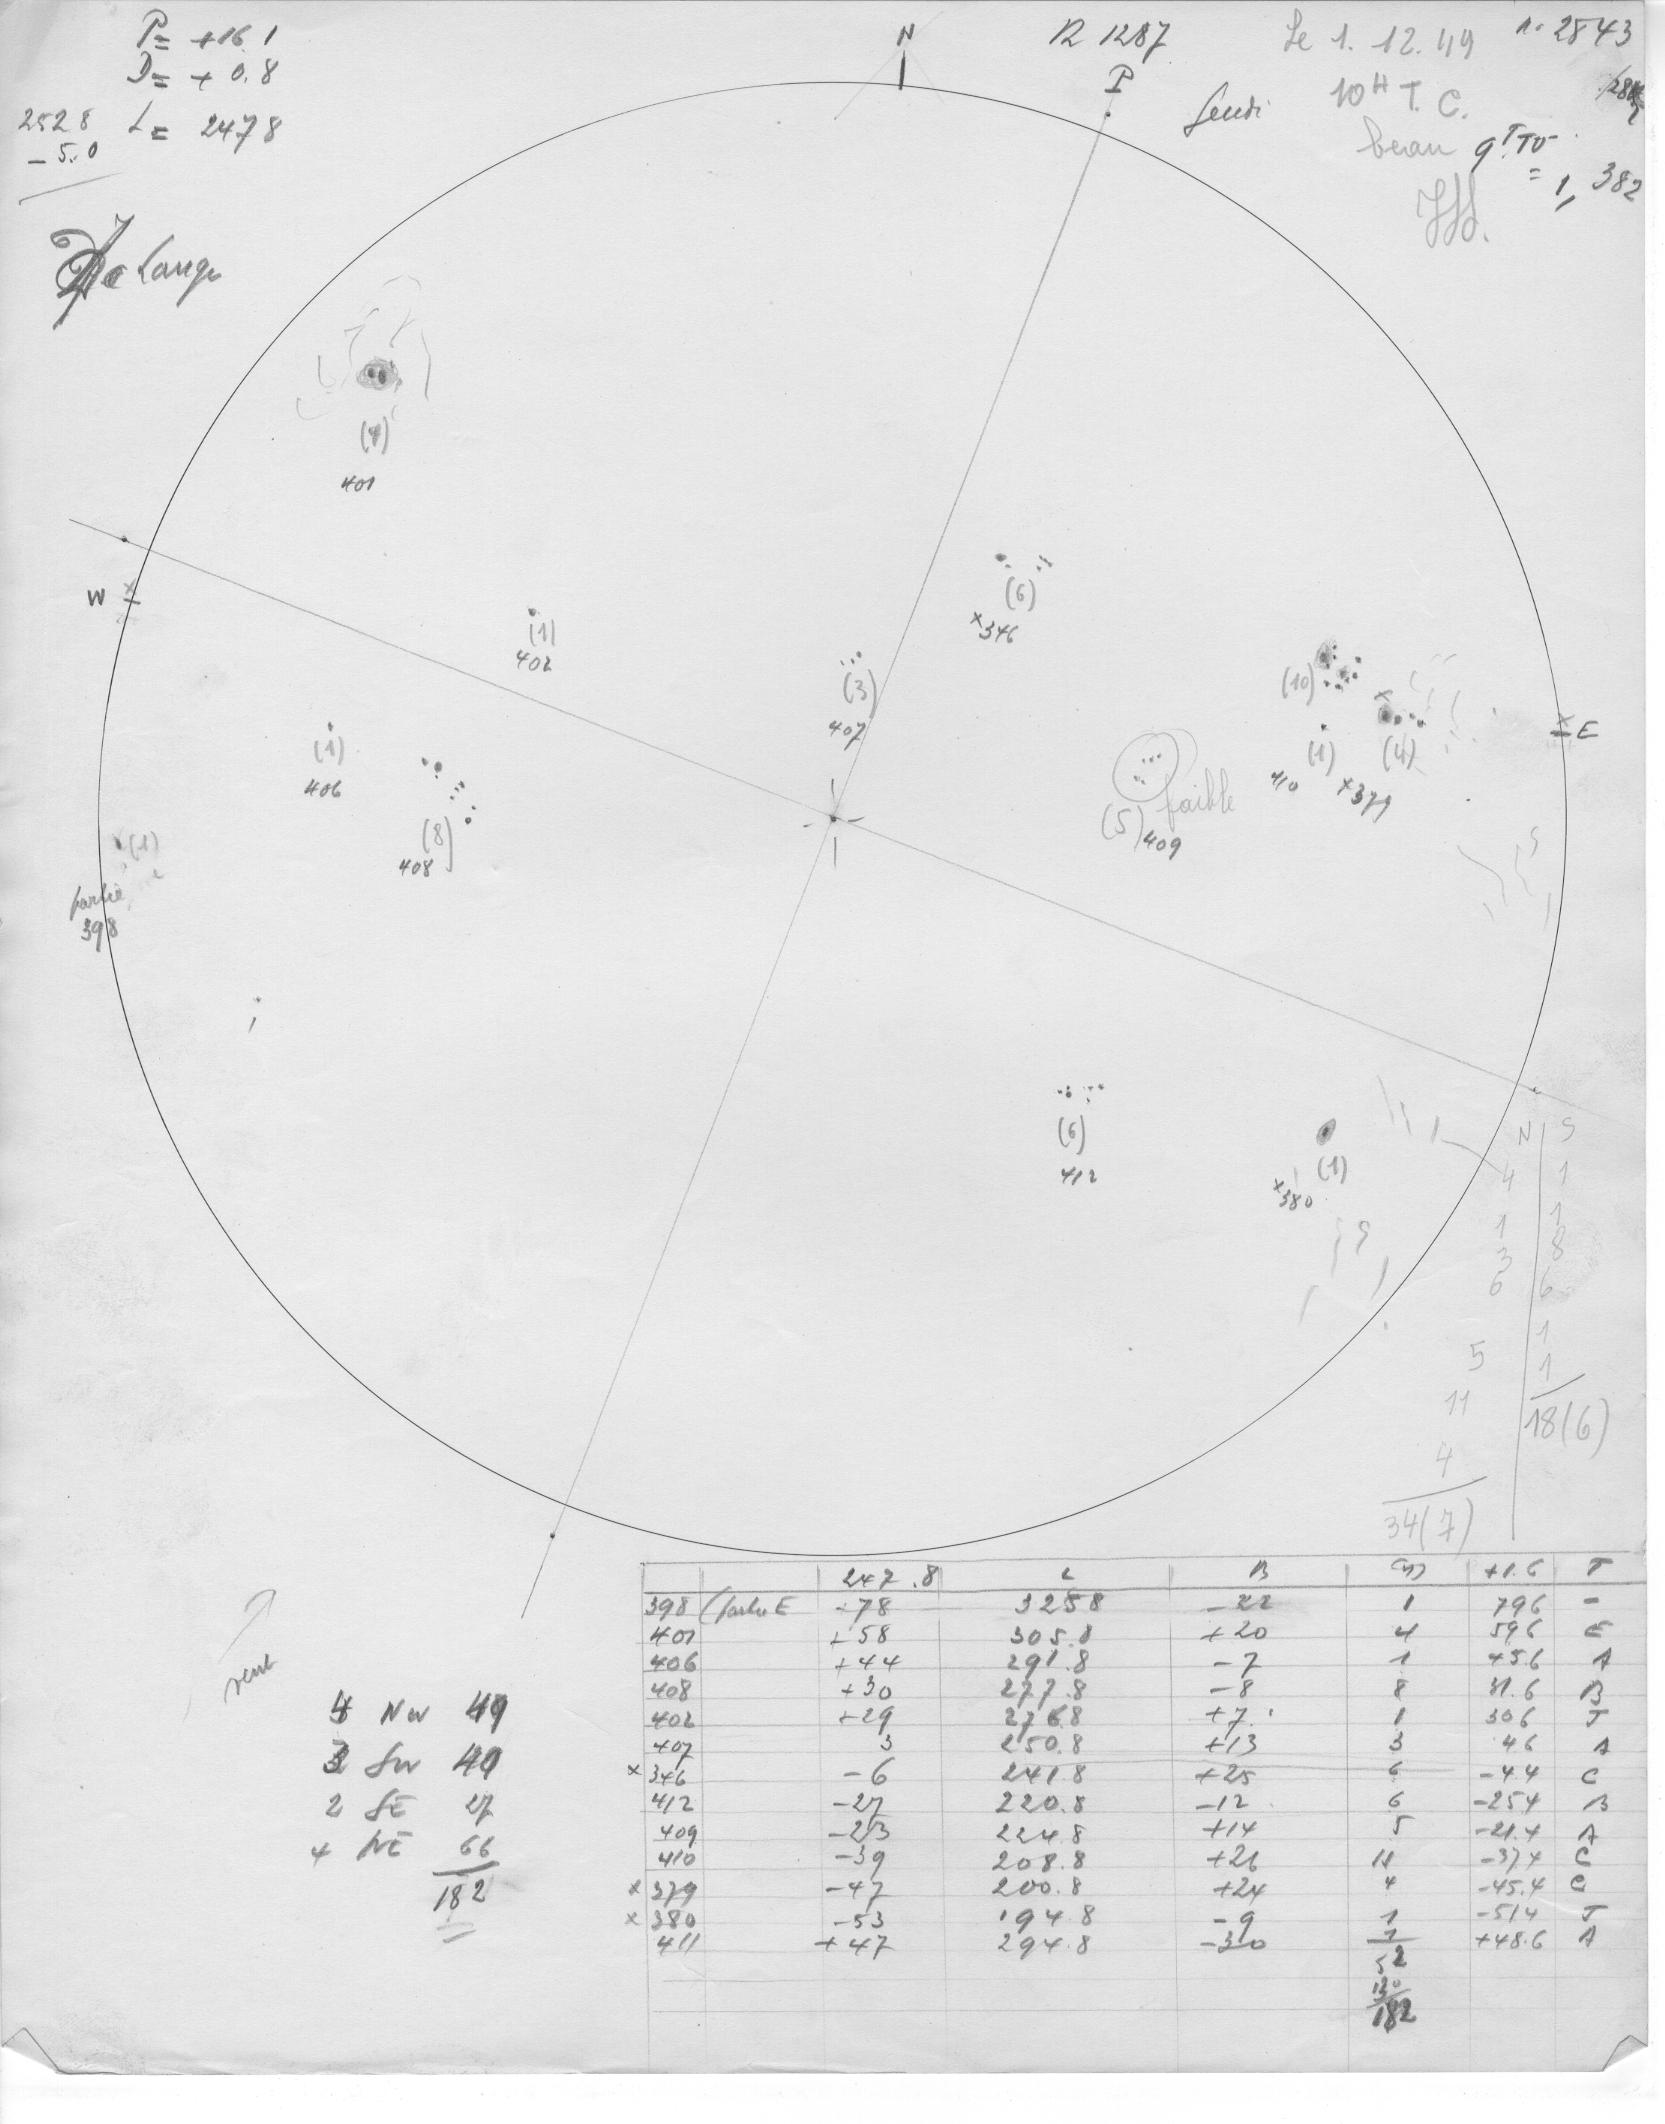 P = +16.1
D = + 0.8
L = 247 8
252 8
- 5.0
De Lange
N
P
R 1287
Le 1. 12. 49
n° 2543
Jeudi
10H T. C.
beau
= 1, 382
(4)
401
W
(1)
402
(6)
x 346
(3)
407
(10)
E
(1)
406
(1)
410
(4)
x 379
faible
(5) 409
(8)
408
(1)
partie
398
(6)
412
(1)
x 380
N S
4 1
1 1
3 8
6 6
5 1
11 1
4 18(6)
34(7)
247.8 L B +1.6 T
398 (partie E -78 325 8 -22 1 796 -
401 +58 305.8 +20 4 596 E
406 +44 291.8 -7 1 456 A
408 +30 277.8 -8 8 31.6 B
402 +29 276.8 +7 1 306 J
407 3 250.8 +13 3 46 A
x 346 -6 241.8 +25 6 -4.4 C
412 -27 220.8 -12 6 -254 B
409 -23 224.8 +14 5 -21.4 A
410 -39 208.8 +26 11 -374 C
x 379 -47 200.8 +24 4 -45.4 C
x 380 -53 194 8 -9 1 -514 J
411 +47 294.8 -30 1 +48.6 A
52
130
182
4 NW 49
3 SW 40
2 SE 27
4 NE 66
182